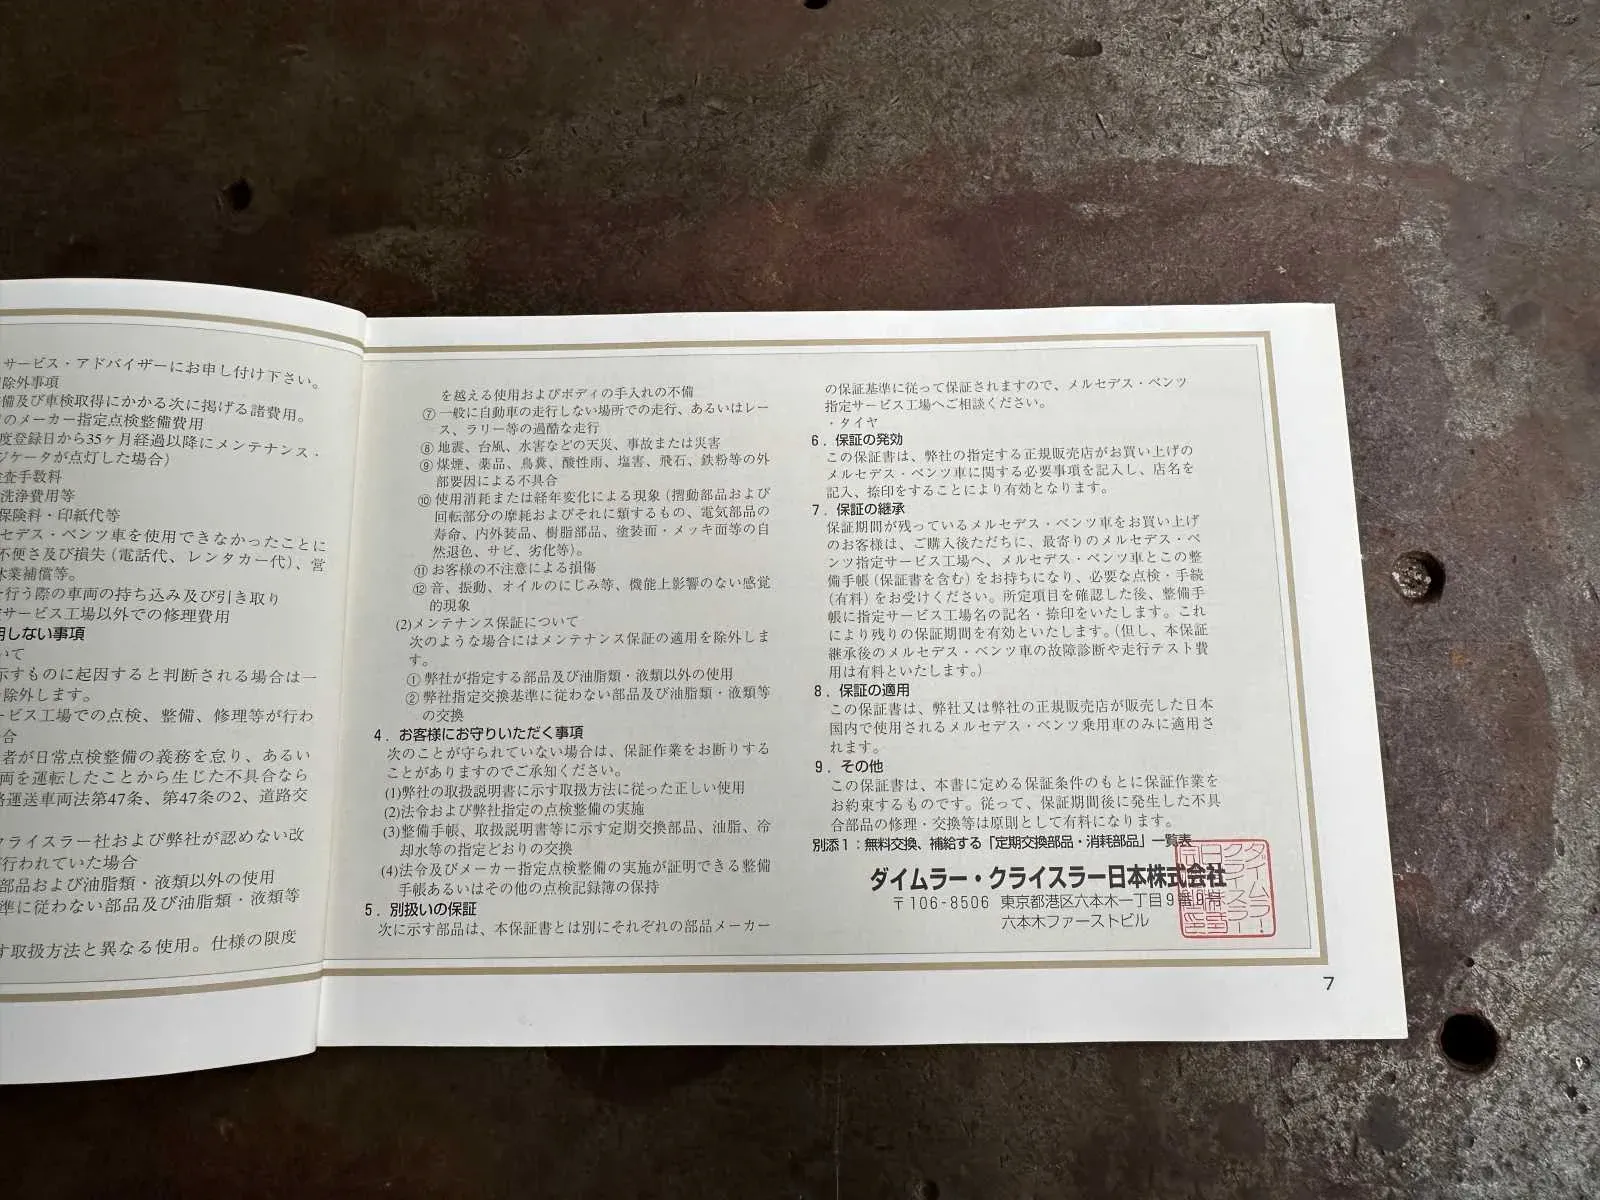 サービス・アドバイザーにお申し付け下さい。
除外事項
備及び車検取得にかかる次に掲げる諸費用。
のメーカー指定点検整備費用
度登録日から35ヶ月経過以降にメンテナンス・
ジケータが点灯した場合)
査手数料
洗浄費用等
保険料・印紙代等
セデス・ベンツ車を使用できなかったことに
不便さ及び損失(電話代、レンタカー代)、営
休業補償等。
行う際の車両の持ち込み及び引き取り
サービス工場以外での修理費用
用しない事項
いて
示すものに起因すると判断される場合は一
除外します。
ービス工場での点検、整備、修理等が行わ
合
者が日常点検整備の義務を怠り、あるい
両を運転したことから生じた不具合なら
路運送車両法第47条、第47条の2、道路交
クライスラー社および弊社が認めない改
行われていた場合
部品および油脂類・液類以外の使用
準に従わない部品及び油脂類・液類等
す取扱方法と異なる使用。仕様の限度
を越える使用およびボディの手入れの不備
⑦一般に自動車の走行しない場所での走行、あるいはレー
ス、ラリー等の過酷な走行
⑧地震、台風、水害などの天災、事故または災害
⑨煤煙、薬品、鳥糞、酸性雨、塩害、飛石、鉄粉等の外
部要因による不具合
⑩使用消耗または経年変化による現象(摺動部品および
回転部分の摩耗およびそれに類するもの、電気部品の
寿命、内外装品、樹脂部品、塗装面・メッキ面等の自
然退色、サビ、劣化等)。
⑪お客様の不注意による損傷
⑫音、振動、オイルのにじみ等、機能上影響のない感覚
的現象
(2)メンテナンス保証について
次のような場合にはメンテナンス保証の適用を除外しま
す。
①弊社が指定する部品及び油脂類・液類以外の使用
②弊社指定交換基準に従わない部品及び油脂類・液類等
の交換
4．お客様にお守りいただく事項
次のことが守られていない場合は、保証作業をお断りする
ことがありますのでご承知ください。
(1)弊社の取扱説明書に示す取扱方法に従った正しい使用
(2)法令および弊社指定の点検整備の実施
(3)整備手帳、取扱説明書等に示す定期交換部品、油脂、冷
却水等の指定どおりの交換
(4)法令及びメーカー指定点検整備の実施が証明できる整備
手帳あるいはその他の点検記録簿の保持
5．別扱いの保証
次に示す部品は、本保証書とは別にそれぞれの部品メーカー
の保証基準に従って保証されますので、メルセデス・ベンツ
指定サービス工場へご相談ください。
・タイヤ
6．保証の発効
この保証書は、弊社の指定する正規販売店がお買い上げの
メルセデス・ベンツ車に関する必要事項を記入し、店名を
記入、捺印をすることにより有効となります。
7．保証の継承
保証期間が残っているメルセデス・ベンツ車をお買い上げ
のお客様は、ご購入後ただちに、最寄りのメルセデス・ベ
ンツ指定サービス工場へ、メルセデス・ベンツ車とこの整
備手帳(保証書を含む)をお持ちになり、必要な点検・手続
(有料)をお受けください。所定項目を確認した後、整備手
帳に指定サービス工場名の記名・捺印をいたします。これ
により残りの保証期間を有効といたします。(但し、本保証
継承後のメルセデス・ベンツ車の故障診断や走行テスト費
用は有料といたします。)
8．保証の適用
この保証書は、弊社又は弊社の正規販売店が販売した日本
国内で使用されるメルセデス・ベンツ乗用車のみに適用さ
れます。
9．その他
この保証書は、本書に定める保証条件のもとに保証作業を
お約束するものです。従って、保証期間後に発生した不具
合部品の修理・交換等は原則として有料になります。
別添1：無料交換、補給する「定期交換部品・消耗部品」一覧表
ダイムラー・クライスラー日本株式会社
〒106-8506 東京都港区六本木一丁目9番9号
六本木ファーストビル
7